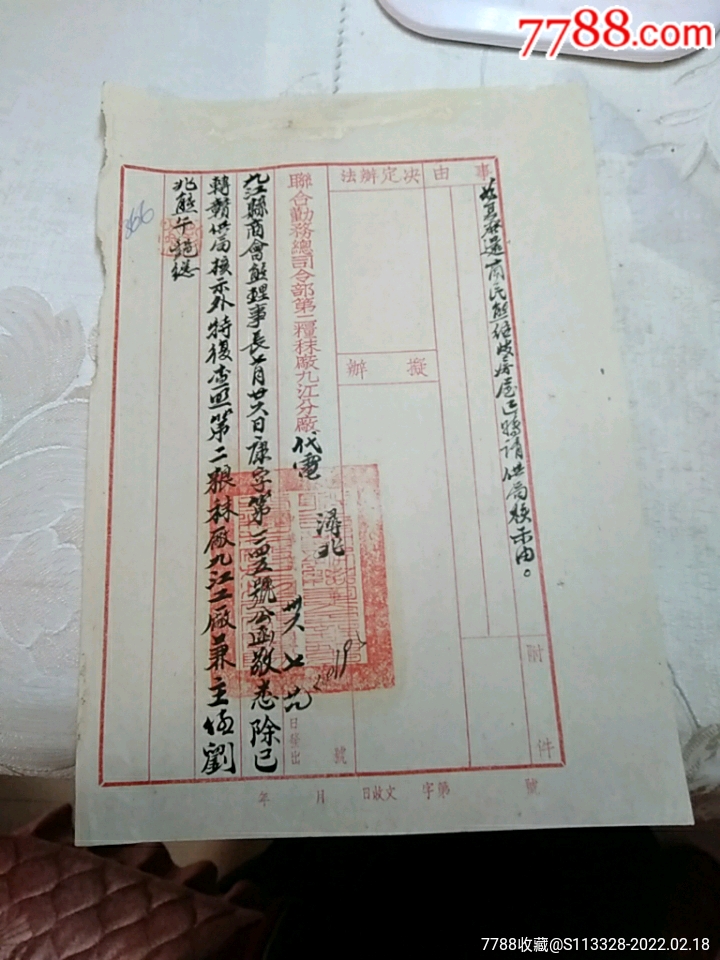 7788.com
事由
兹复発還商民熊経岐房屋已轉請供局核示由。
附件
决定辦法
擬辦
聯合勤務總司令部第二糧秣廠九江分廠
代電
潯北
卅六 七
日發出
號
九江縣商會熊理事長七月廿六日康字第二四五號公函敬悉除已
轉贛供局核示外特復查照第二粮秣廠九江工廠兼主任劉
兆熊午
866
年 月 日收文 字第 號
7788收藏@S113328-2022.02.18